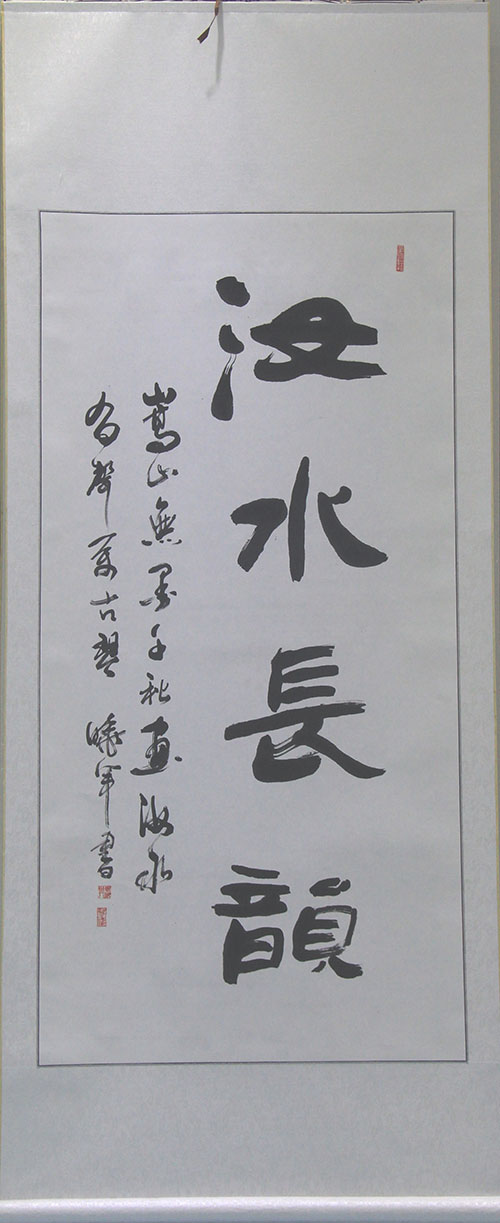 汝水長韻
嵩山無墨千秋畫汝水
有聲萬古琴 曉軍書